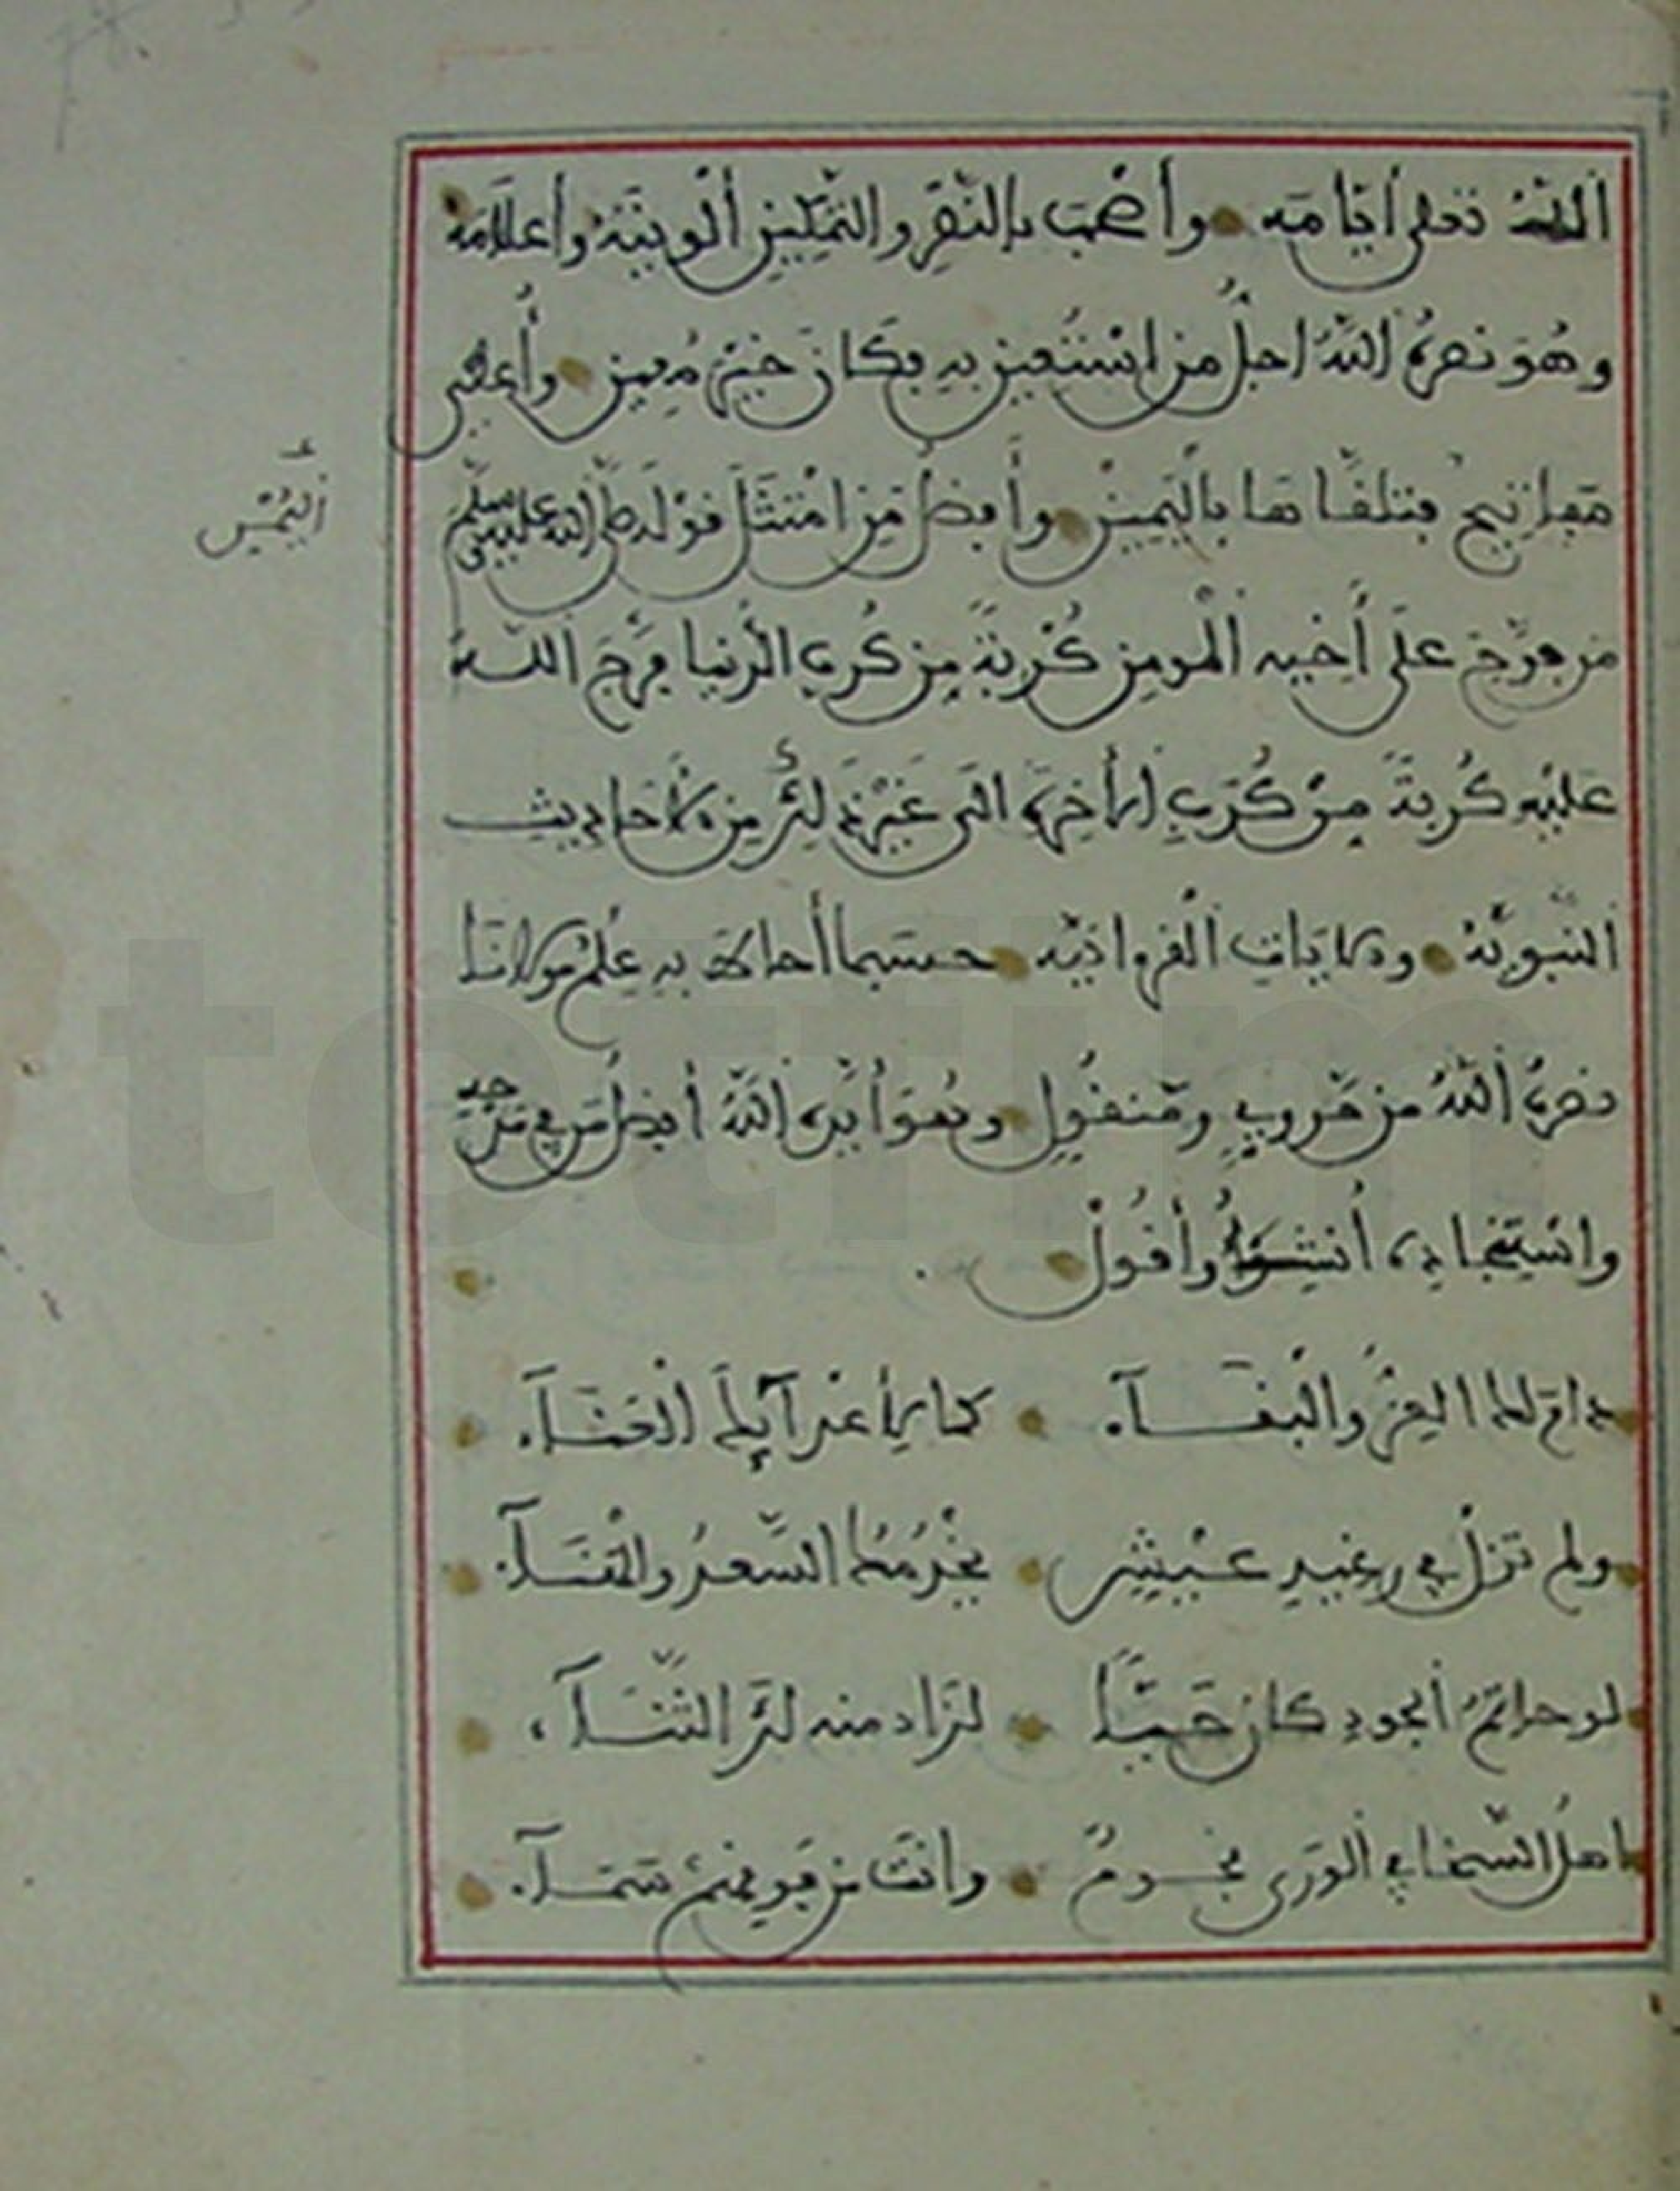 الله تعلى أيامه وأصحب بالنصر والتمكين ألويته وأعلامه
وهو نصره الله اجل من استعين به فكان خير معين وأعلى
فتلقاها باليمين وأفضل من امتثل قوله صلى الله عليه وسلم
اليمين
من فرج على أخيه المومن كربة من كرب الدنيا فرج الله
عليه كربة من كرب الأخرة الى غير ذلك من الأحاديث
النبوية والايات القرءانية حسبما أحاط به علم مولانا
نصره الله من مروي ومنقول وهو أيده الله أفضل من في مدحه
واستنجاده أنشد وأقول
دام لها العز والبقاء كما لأعدائها الفناء
ولم تزل في رغيد عيش يخدمها السعد والهناء
لو حاتم الجود كان حيا لزاد منه لك الثناء
اهل السخا في الورى نجوم وانت من فوقهم سماء